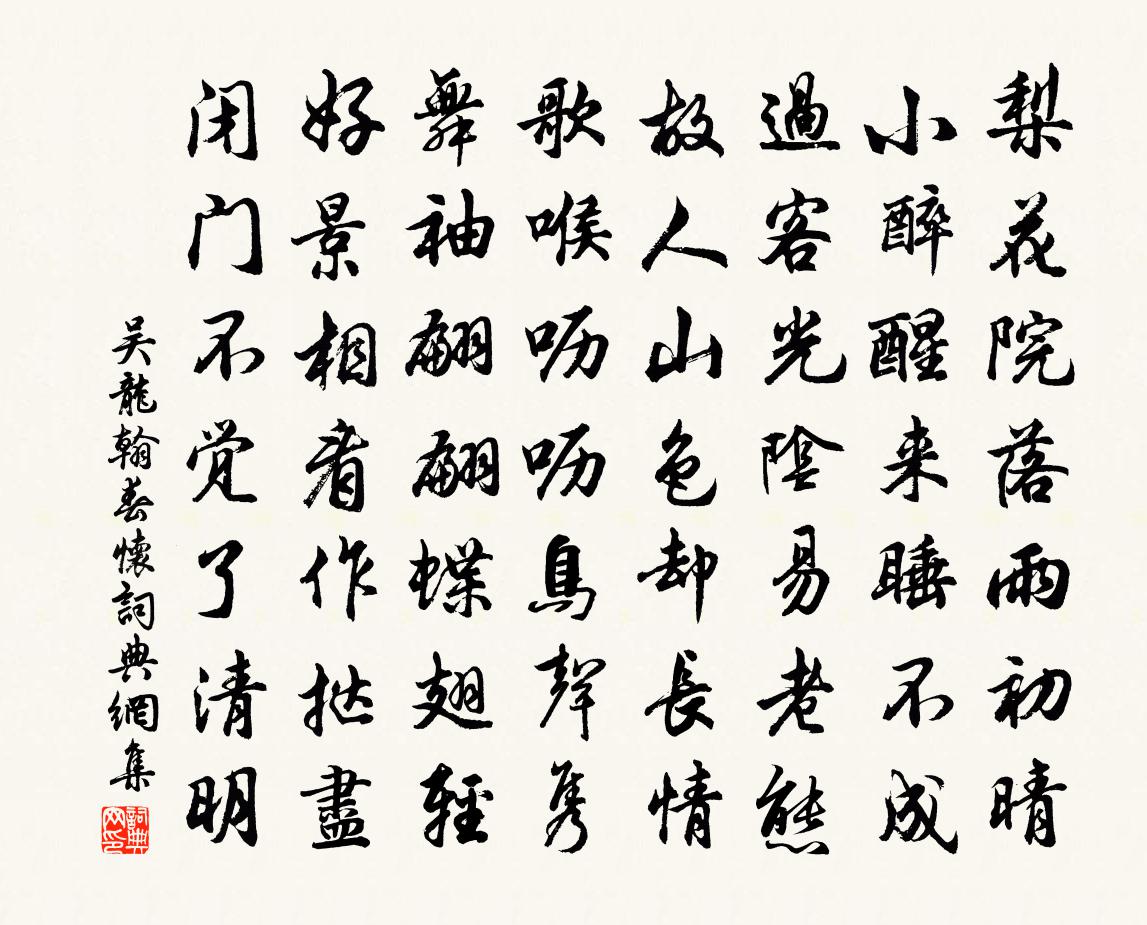 梨花院落雨初晴
小醉醒来睡不成
過客光陰易老態
故人山色却長情
歌喉呖呖鳥聲隽
舞袖翩翩蝶翅輕
好景相看作挞盡
闭门不觉了清明
吴龍翰春懷詞典網集
詞典网印